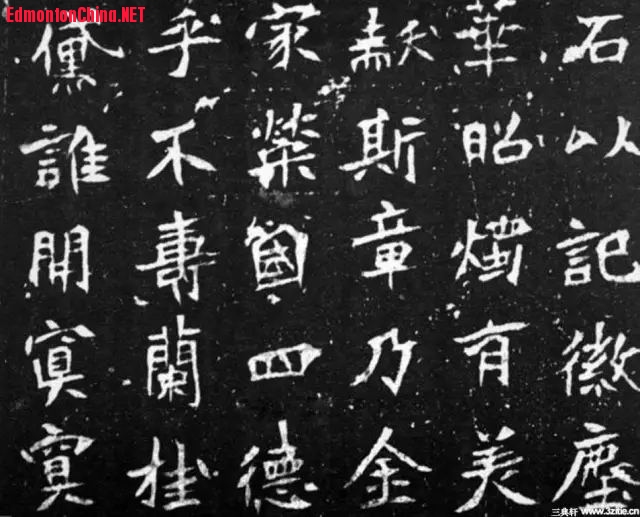 EdmontonChina.NET
石以記徽塵
華昭燭有美
斯章乃金
家榮國四德
乎不壽蘭桂
儻誰開冥冥
三典轩 www.3zitie.cn